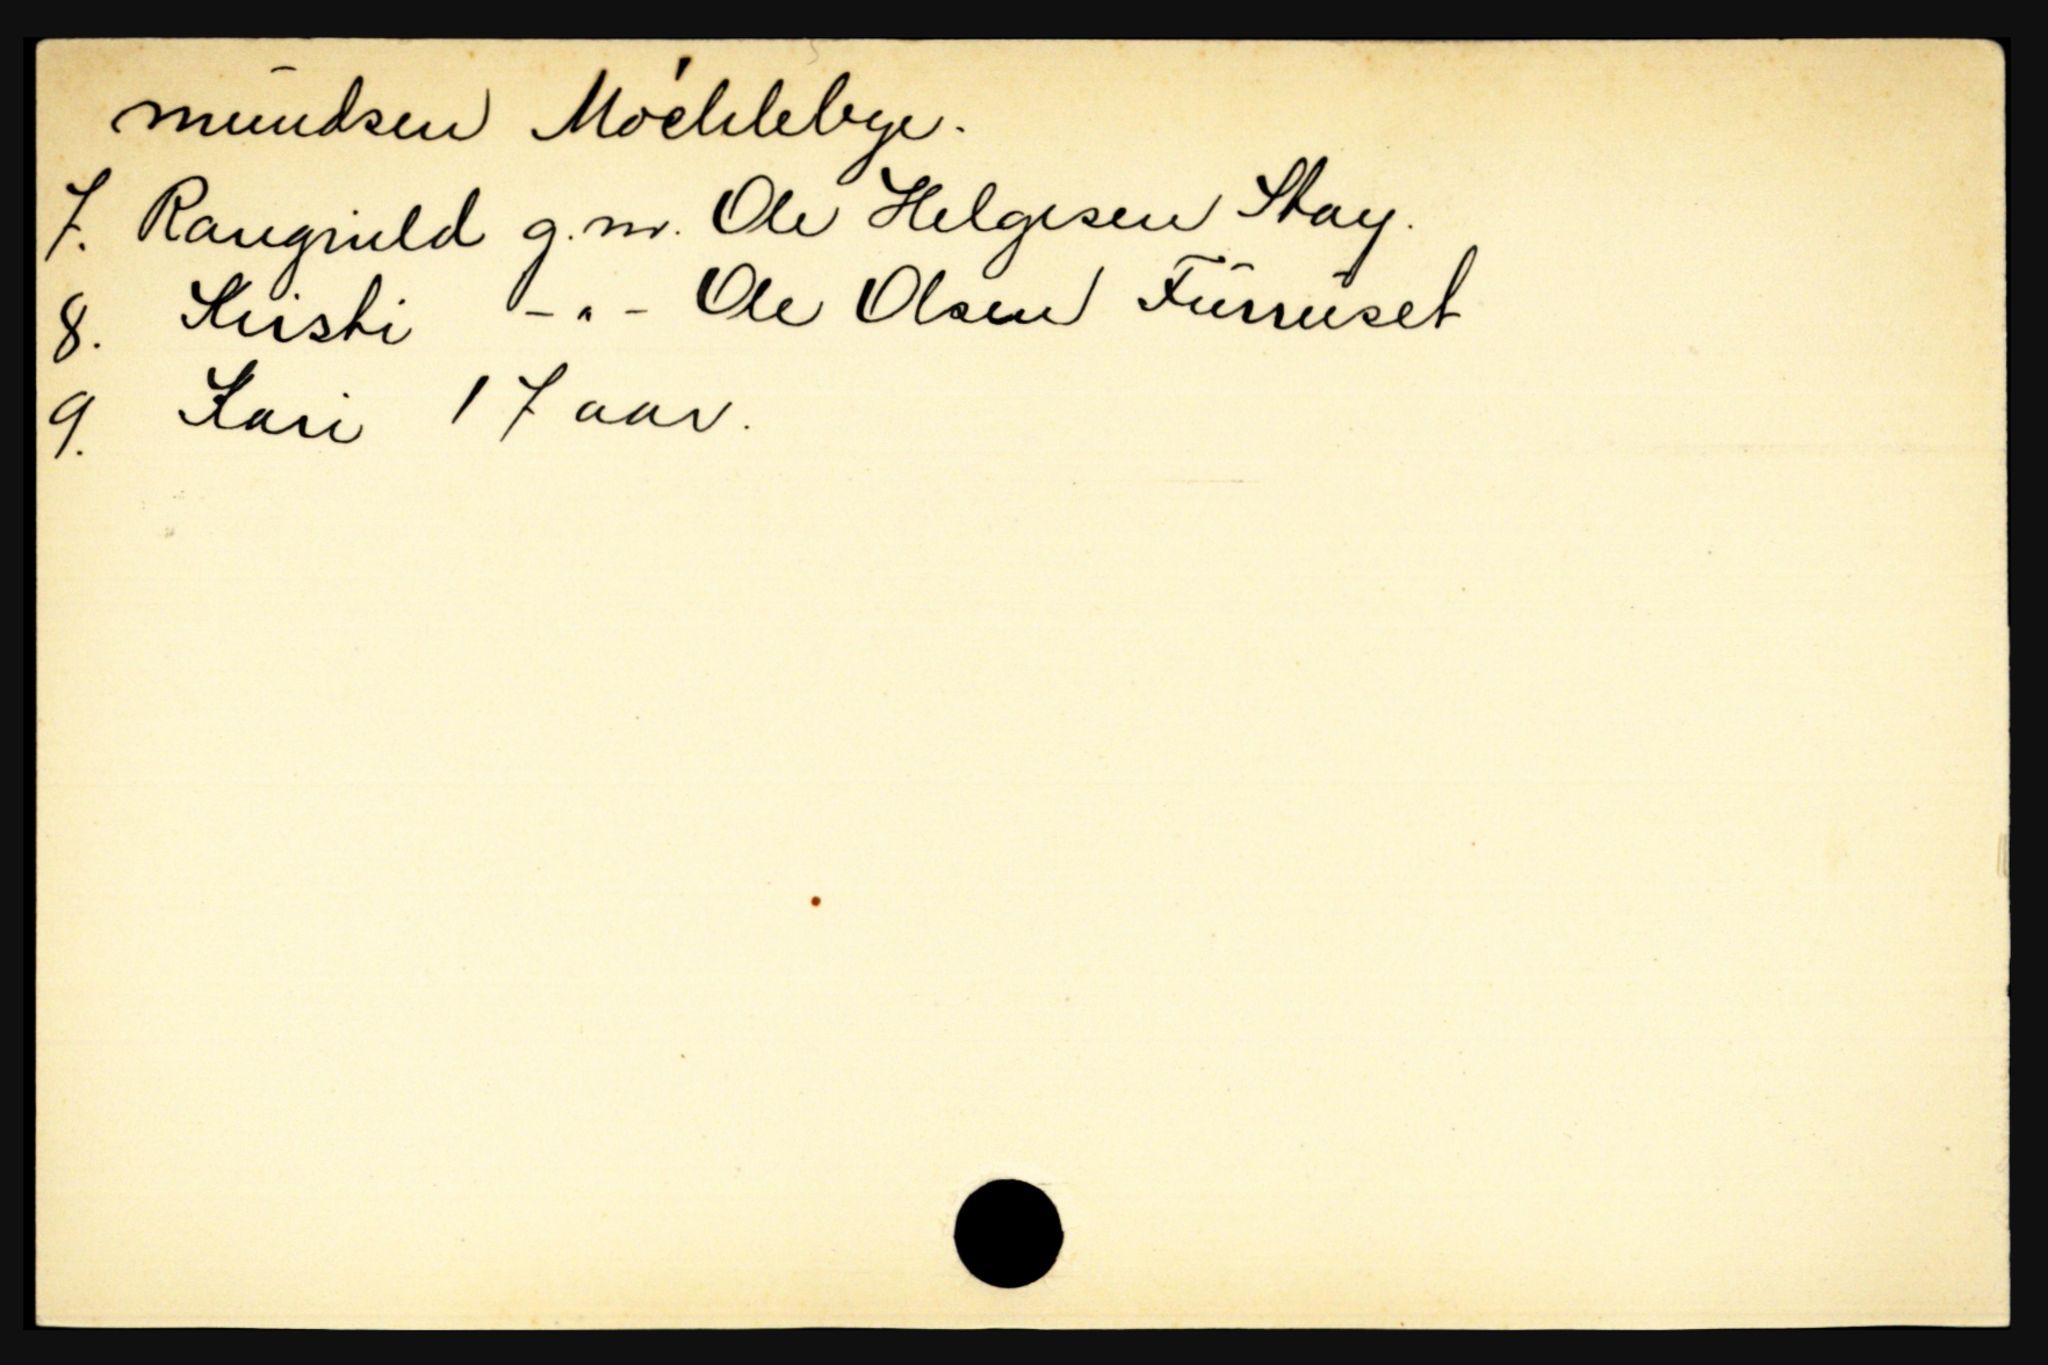 mundsen Möchlebye.
7. Rangnild g.m. Ole Helgesen Stay.
8. Kirsti -"- Ole Olsen Furruset
9. Kari 17 aar.